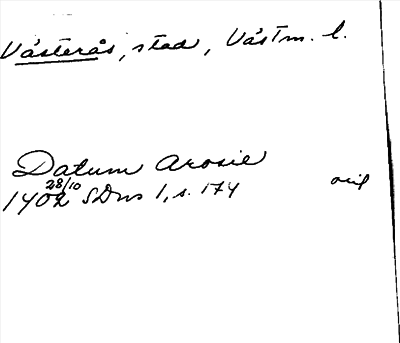 Västerås, stad, Västm. l.
Datum Arosie orig
28/10
1402 SDns 1, s. 174